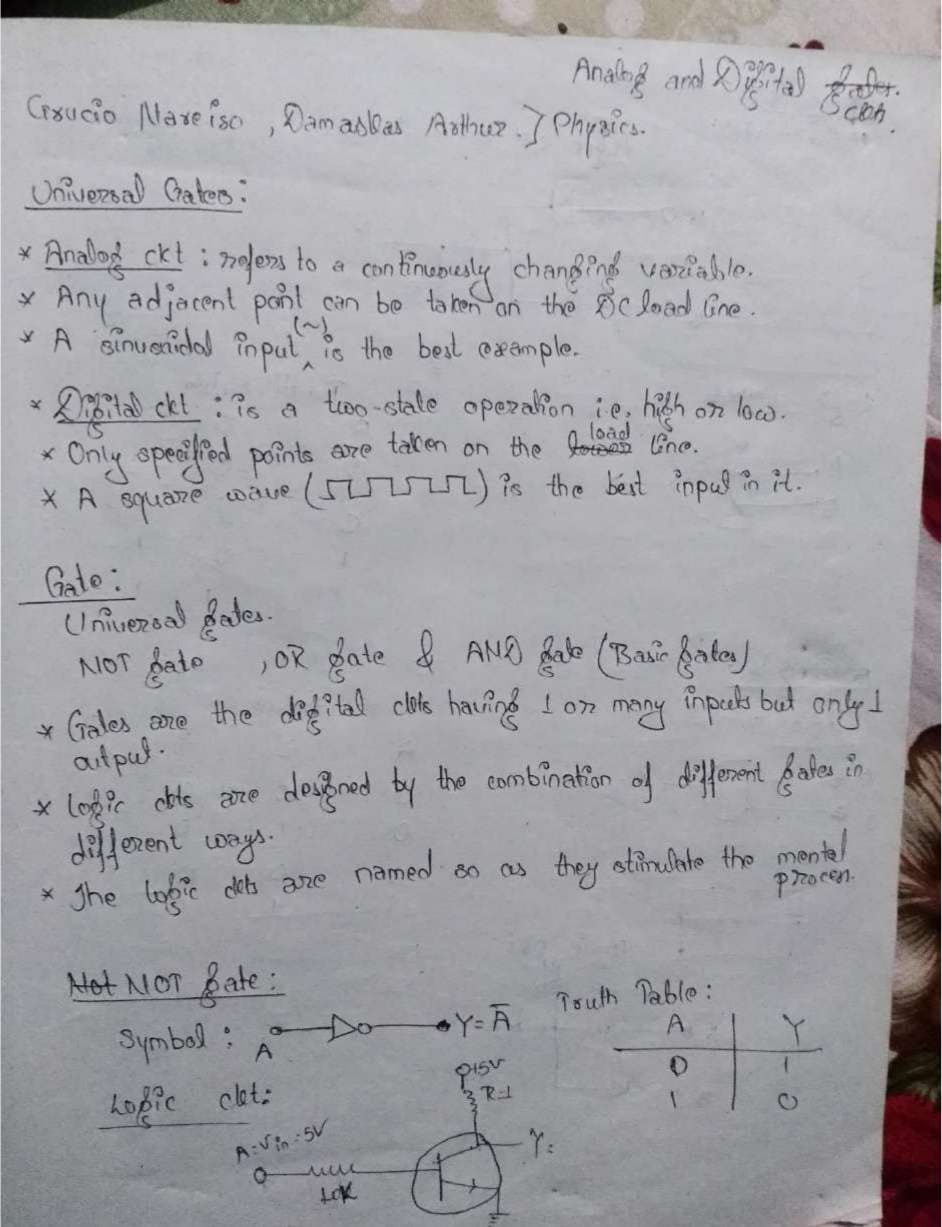 Analog and Digital
Damaskas Arthur. } Physics.
Universal Gates:
* Analog ckt : refers to a continuously changing variable.
* Any adjacent point can be taken on the DC load line.
* A sinusoidal input (~) is the best example.
* Digital ckt : is a two-state operation i.e, high or low.
* Only specified points are taken on the load line.
* A square wave ( ) is the best input in it.
Gate:
Universal gates.
NOT gate , OR gate & AND gate (Basic gates)
* Gates are the digital ckts having 1 or many inputs but only 1
output.
* Logic ckts are designed by the combination of different gates in
different ways.
* The logic ckts are named so as they stimulate the mental
process.
Not NOT gate:
Truth Table:
Symbol : A Y = A̅
A Y
0 1
1 0
Logic ckt:
+15V
R-1
A = Vin = 5V
Y =
10K